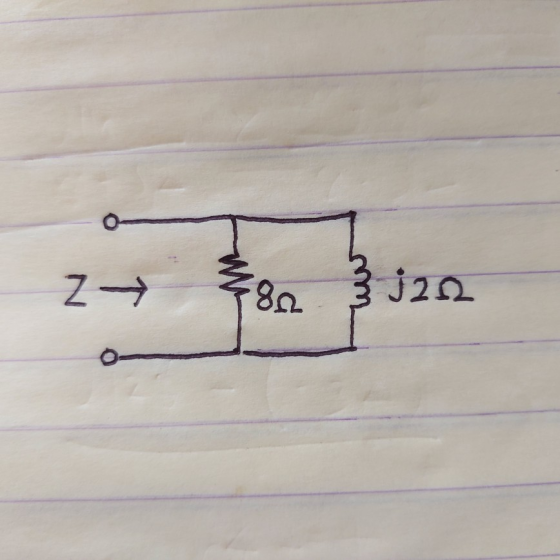 Z → 8Ω j2Ω